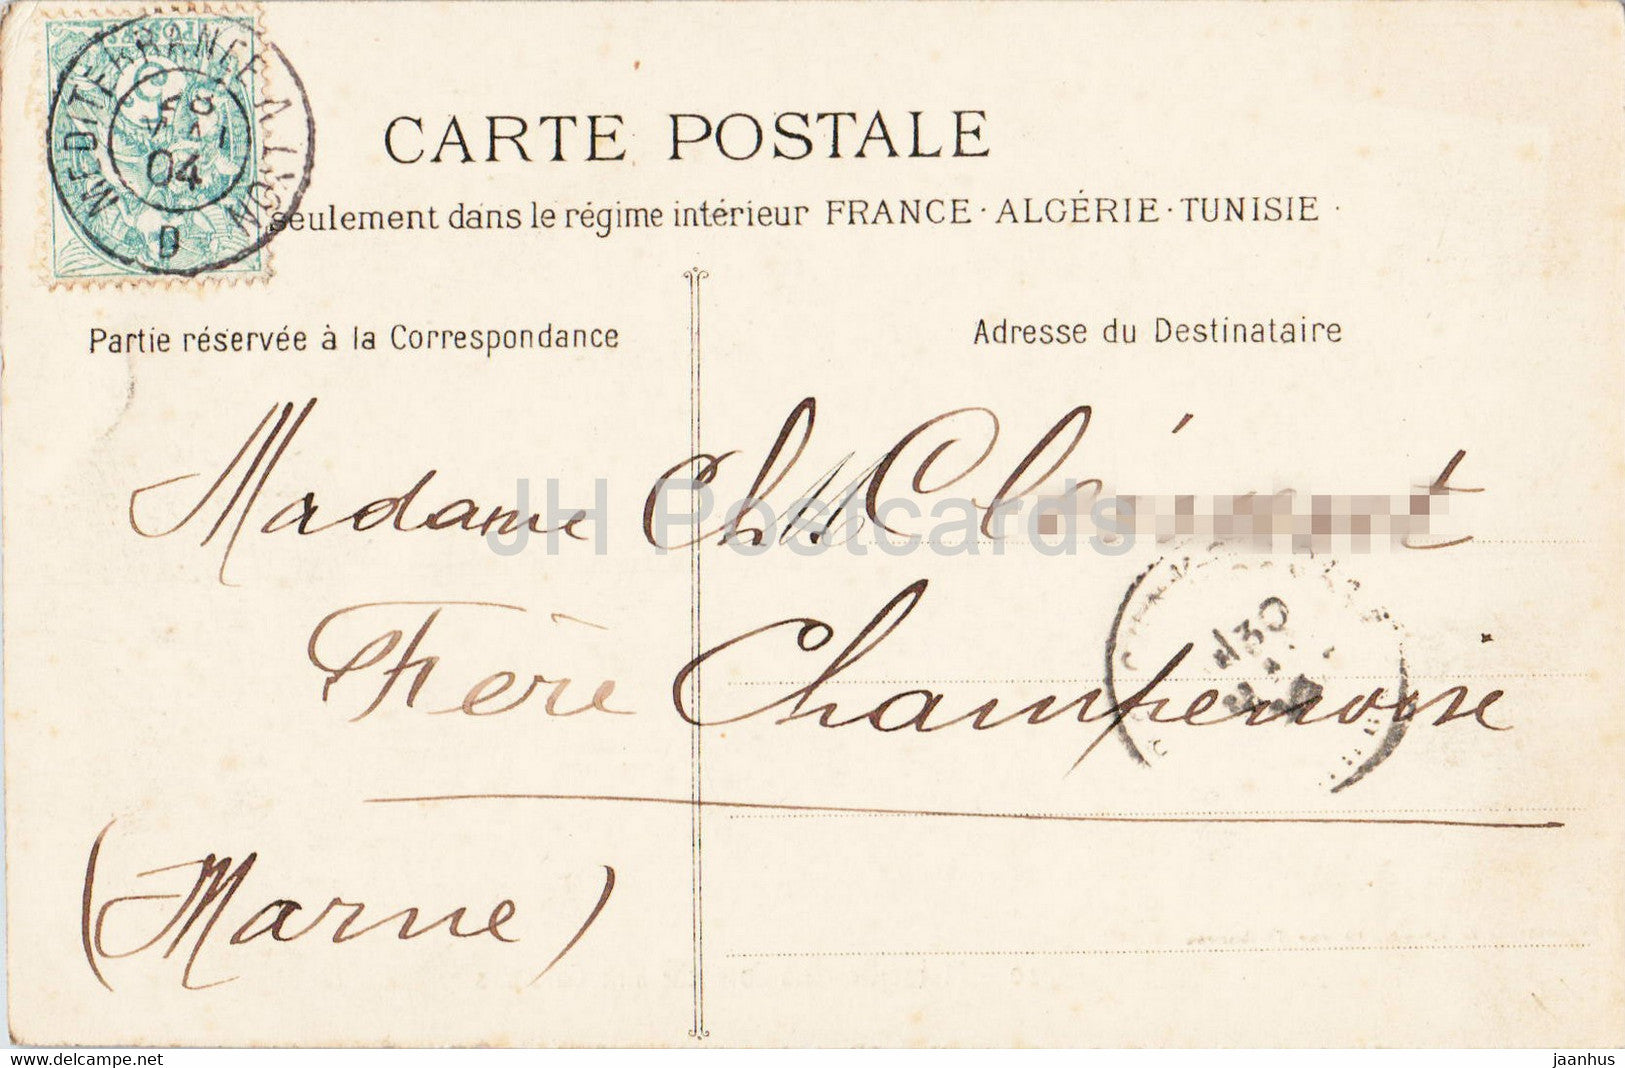 MEDITERRANEE A LYON
28
MAI
04
D
CARTE POSTALE
seulement dans le régime intérieur FRANCE · ALGÉRIE · TUNISIE ·
Partie réservée à la Correspondance
Adresse du Destinataire
Madame Ch
JH Postcards
Fère Champenoise
30
(Marne)
delcampe.net
jaanhus